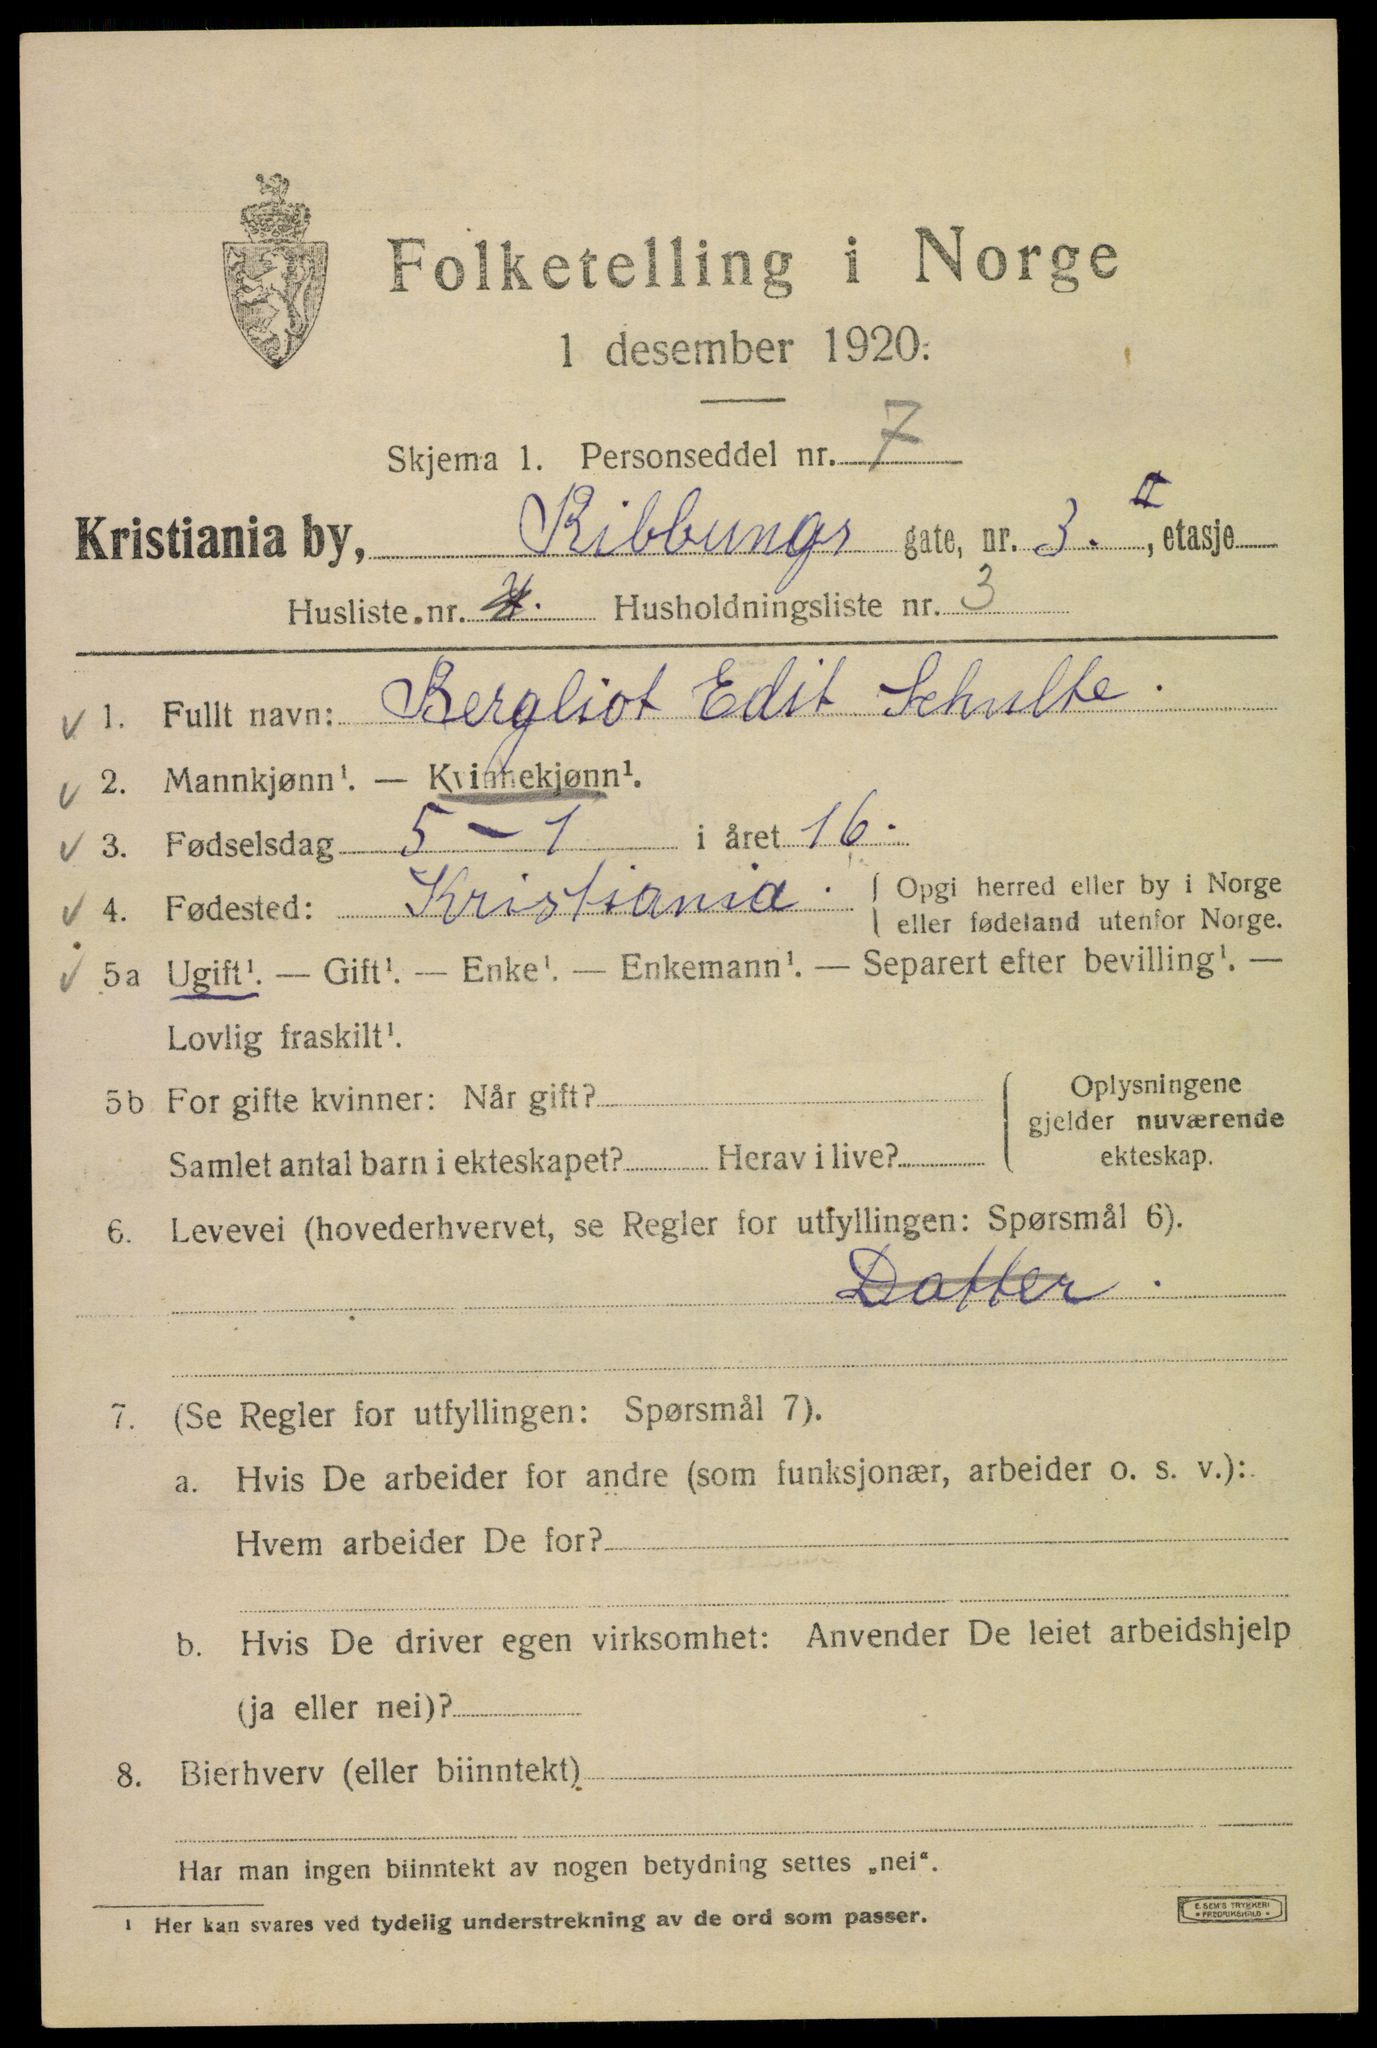 Folketelling i Norge
1 desember 1920.
Skjema 1. Personseddel nr. 7
Kristiania by, Ribbungs gate, nr. 3. II, etasje
Husliste nr. Husholdningsliste nr. 3
1. Fullt navn: Bergliot Edit Schulte.
2. Mannkjønn¹. — Kvinnekjønn¹.
3. Fødselsdag 5 – 1 i året 16.
4. Fødested: Kristiania. Opgi herred eller by i Norge
eller fødeland utenfor Norge.
5a Ugift¹. — Gift¹. — Enke¹. — Enkemann¹. — Separert efter bevilling¹. —
Lovlig fraskilt¹.
5b For gifte kvinner: Når gift? Oplysningene
gjelder nuværende
Samlet antal barn i ekteskapet? Herav i live? ekteskap.
6. Levevei (hovederhvervet, se Regler for utfyllingen: Spørsmål 6).
Datter.
7. (Se Regler for utfyllingen: Spørsmål 7).
a. Hvis De arbeider for andre (som funksjonær, arbeider o. s. v.):
Hvem arbeider De for?
b. Hvis De driver egen virksomhet: Anvender De leiet arbeidshjelp
(ja eller nei)?
8. Bierhverv (eller biinntekt)
Har man ingen biinntekt av nogen betydning settes „nei“.
¹ Her kan svares ved tydelig understrekning av de ord som passer.
E. SEM'S TRYKKERI
FREDRIKSHALD